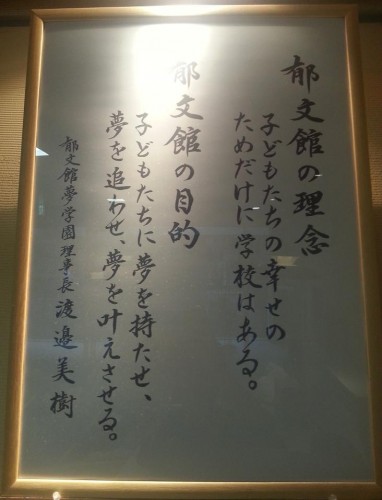 郁文館の理念
子どもたちの幸せの
ためだけに学校はある。
郁文館の目的
子どもたちに夢を持たせ、
夢を追わせ、夢を叶えさせる。
郁文館夢学園理事長 渡邉美樹